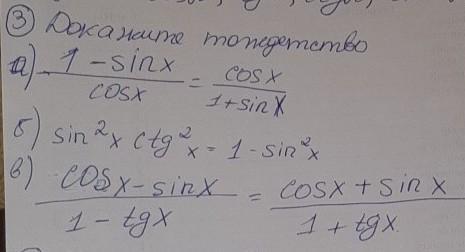 ③ Докажите тождетство
а) (1 - sin x)/(cos x) = (cos x)/(1 + sin x)
б) sin² x ctg² x = 1 - sin² x
в) (cos x - sin x)/(1 - tg x) = (cos x + sin x)/(1 + tg x)